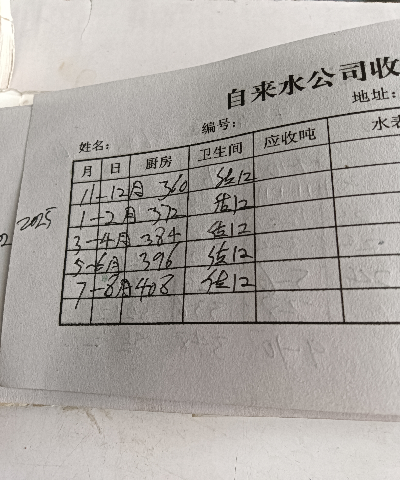 自来水公司收
姓名： 编号： 地址：
月 日 厨房 卫生间 应收吨 水表
11-12月 360 估12
2025 1-2月 372 估12
3-4月 384 估12
5-6月 396 估12
7-8月 408 估12